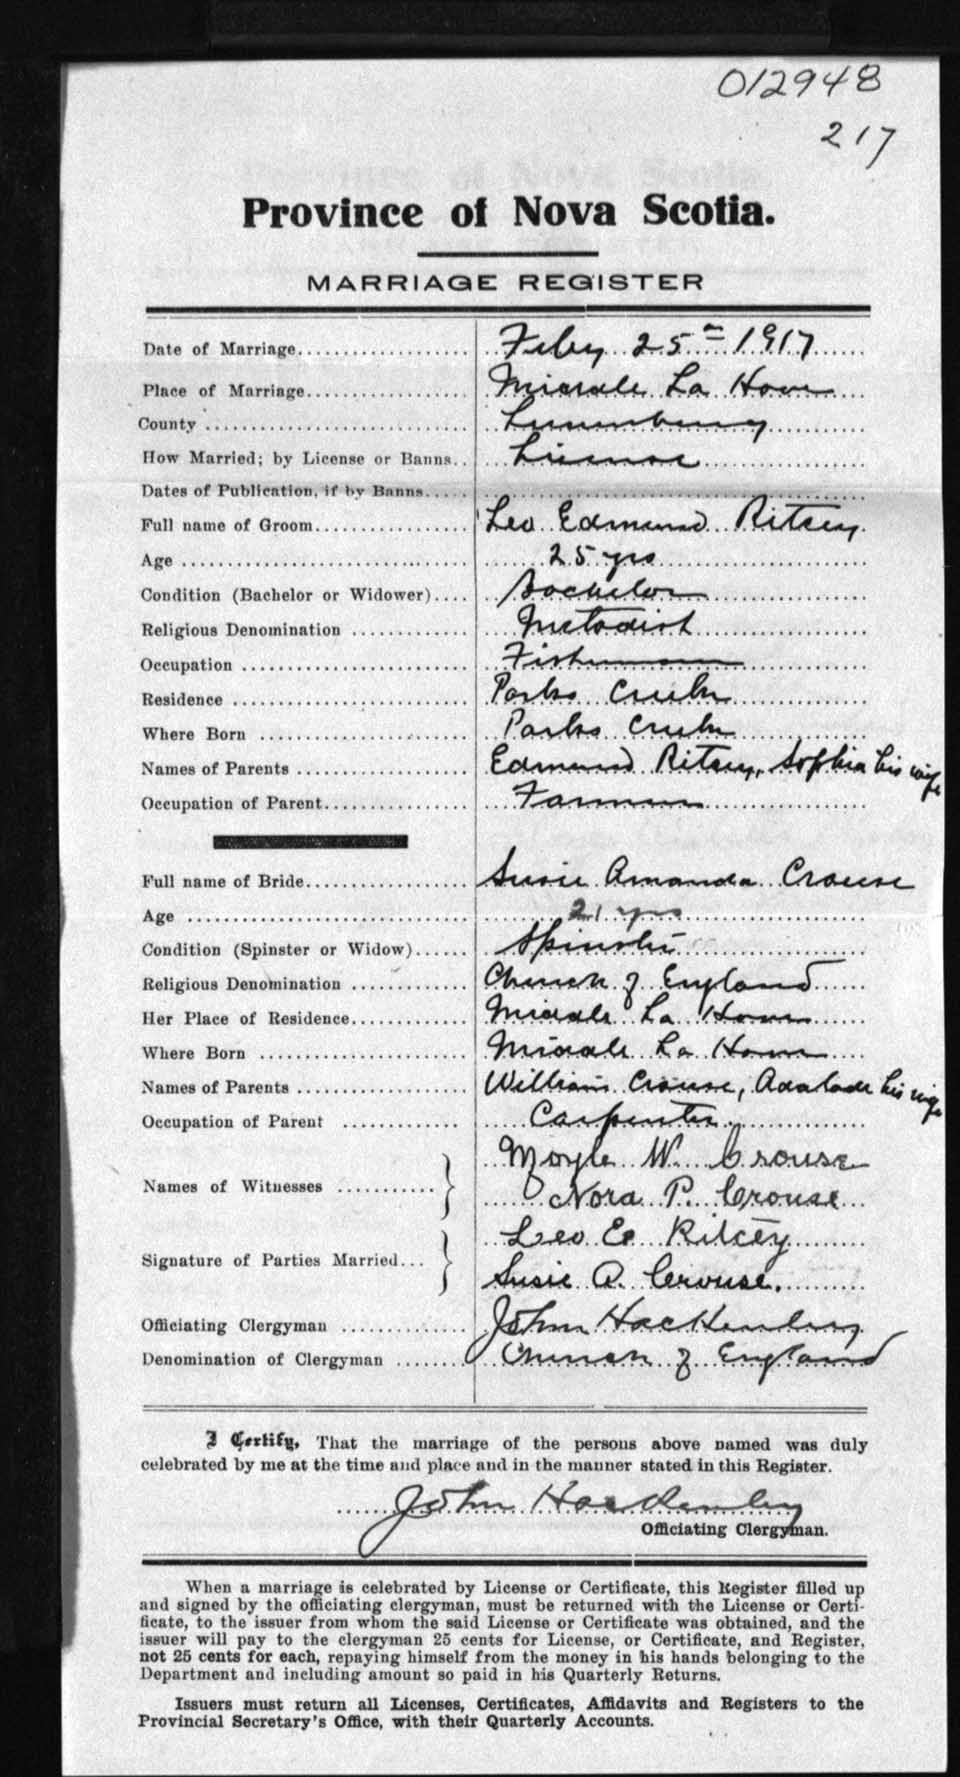 012948
217
Province of Nova Scotia.
MARRIAGE REGISTER
Date of Marriage Feby 25th 1917
Place of Marriage Middle La Have
County Lunenburg
How Married; by License or Banns License
Dates of Publication, if by Banns
Full name of Groom Leo Edmund Ritcey
Age 25 yrs
Condition (Bachelor or Widower) Bachelor
Religious Denomination Metodist
Occupation Fisherman
Residence Parks Creek
Where Born Parks Creek
Names of Parents Edmund Ritcey, Sophia his wife
Occupation of Parent Farmer
Full name of Bride Susie Amanda Crouse
Age 21 yrs
Condition (Spinster or Widow) Spinster
Religious Denomination Church of England
Her Place of Residence Middle La Have
Where Born Middle La Have
Names of Parents William Crouse, Adalade his wife
Occupation of Parent Carpenter
Names of Witnesses Moyle W. Crouse
Nora P. Crouse
Signature of Parties Married Leo E. Ritcey
Susie A. Crouse.
Officiating Clergyman John Hackenley
Denomination of Clergyman Church of England
I Certify, That the marriage of the persons above named was duly
celebrated by me at the time and place and in the manner stated in this Register.
John Hackenley
Officiating Clergyman.
When a marriage is celebrated by License or Certificate, this Register filled up
and signed by the officiating clergyman, must be returned with the License or Certi-
ficate, to the issuer from whom the said License or Certificate was obtained, and the
issuer will pay to the clergyman 25 cents for License, or Certificate, and Register,
not 25 cents for each, repaying himself from the money in his hands belonging to the
Department and including amount so paid in his Quarterly Returns.
Issuers must return all Licenses, Certificates, Affidavits and Registers to the
Provincial Secretary's Office, with their Quarterly Accounts.